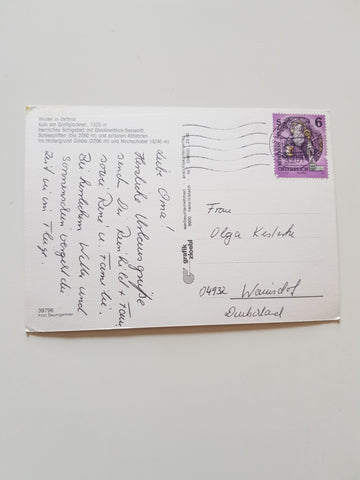 Winter in Osttirol
Kals am Großglockner, 1325 m
Herrliches Schigebiet mit Glocknerblick-Sessellift,
Schlepplliften (bis 2050 m) und schönen Abfahrten
Im Hintergrund Göslu (3206 m) und Hochschober (3240 m)
Liebe Oma!
Herzliche Urlaubsgrüße
send. Dir Reinhild + Fam.
sowie René u. Familie.
Bei herrlichem Wetter und
Sonnenschein vergeht die
Zeit wie im Fluge.
38796
Foto Baumgartner
grafik
6
ÖSTERREICH
Frau
Olga
04932
Deutschland